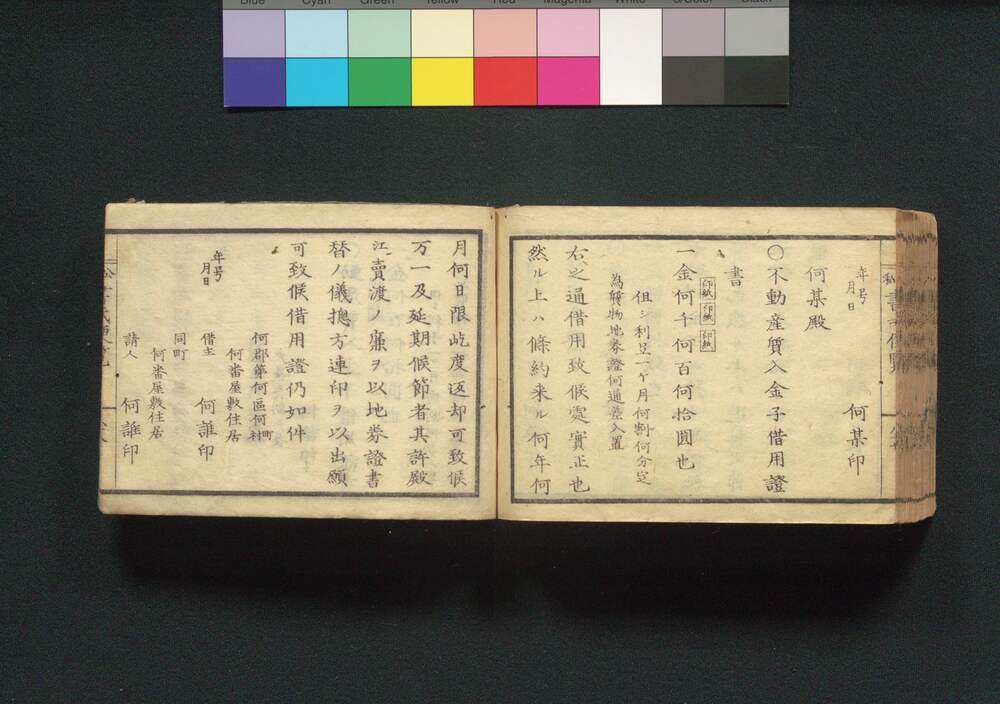 Blue Cyan Green Yellow Red Magenta White 3/Color Black
年号
月日
何某印
何某殿
〇不動産質入金子借用證
書
印紙 印紙 印紙
一金何千何百何拾圓也
但シ利足一ヶ月何割何分定
為質物地券證何通差入置
右之通借用致候處實正也
然ル上ハ條約来ル何年何
月何日限屹度返却可致候
万一及延期候節者其許殿
江賣渡ノ廉ヲ以地券證書
替ノ儀摠方連印ヲ以出願
可致候借用證仍如件
年号
月日
何郡第何區何町村
何番屋敷住居
借主 何誰印
同町
何番屋敷住居
請人 何誰印